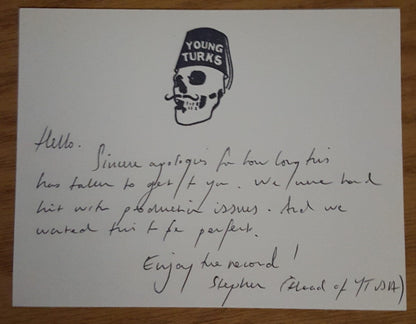 YOUNG
TURKS
Hello.
Sincere apologies for how long this
has taken to get to you. We were hard
hit with production issues. And we
wanted this to be perfect.
Enjoy the record!
Stephen (Head of YT USA)